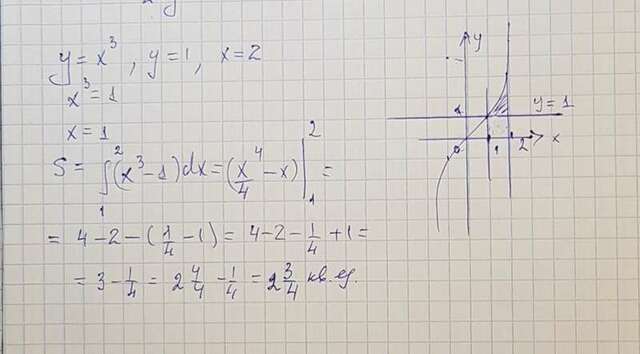 y = x³, y = 1, x = 2
x³ = 1
x = 1
S = ∫₁² (x³ - 1) dx = (x⁴/4 - x) |₁² =
= 4 - 2 - (1/4 - 1) = 4 - 2 - 1/4 + 1 =
= 3 - 1/4 = 2 4/4 - 1/4 = 2 3/4 кв. ед.
y
1
y = 1
0
1
2
x